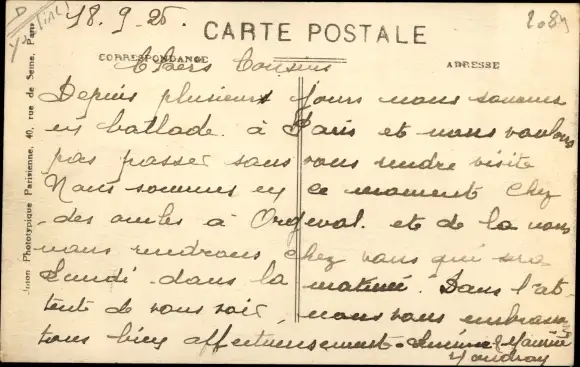 18.9-25.
2.89
CARTE POSTALE
CORRESPONDANCE
ADRESSE
Chers Cousins
Depuis plusieurs jours nous sommes
en ballade à Paris et nous voulons
pas passer sans vous rendre visite
Nous sommes en ce moment chez
des amis à Orgeval. et de la nous
nous rendrons chez vous qui sera
Lundi dans la matinée. Dans l'at-
tente de vous voir, nous vous embrassons
tous bien affectueusement. Maurice
Union Phototypique Parisienne, 40, rue de Seine, Paris